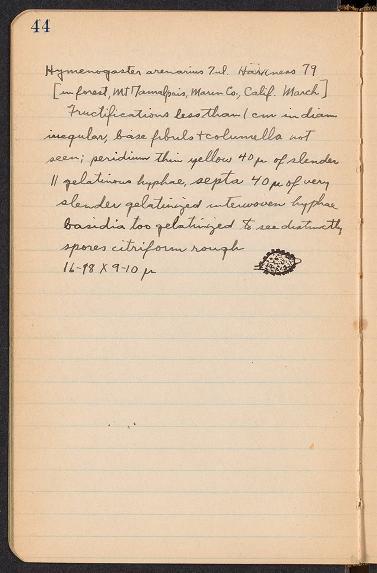 44
Hymenogaster arenarius Tul. Harkness 79
[in forest, Mt Tamalpais, Marin Co., Calif. March]
Fructifications less than 1 cm in diam
irregular, base fibrils + columella not
seen; peridium thin yellow 40 µ of slender
|| gelatinous hyphae, septa 40 µ of very
slender gelatinized interwoven hyphae
basidia too gelatinized to see distinctly
spores citriform rough
16-18 X 9-10 µ